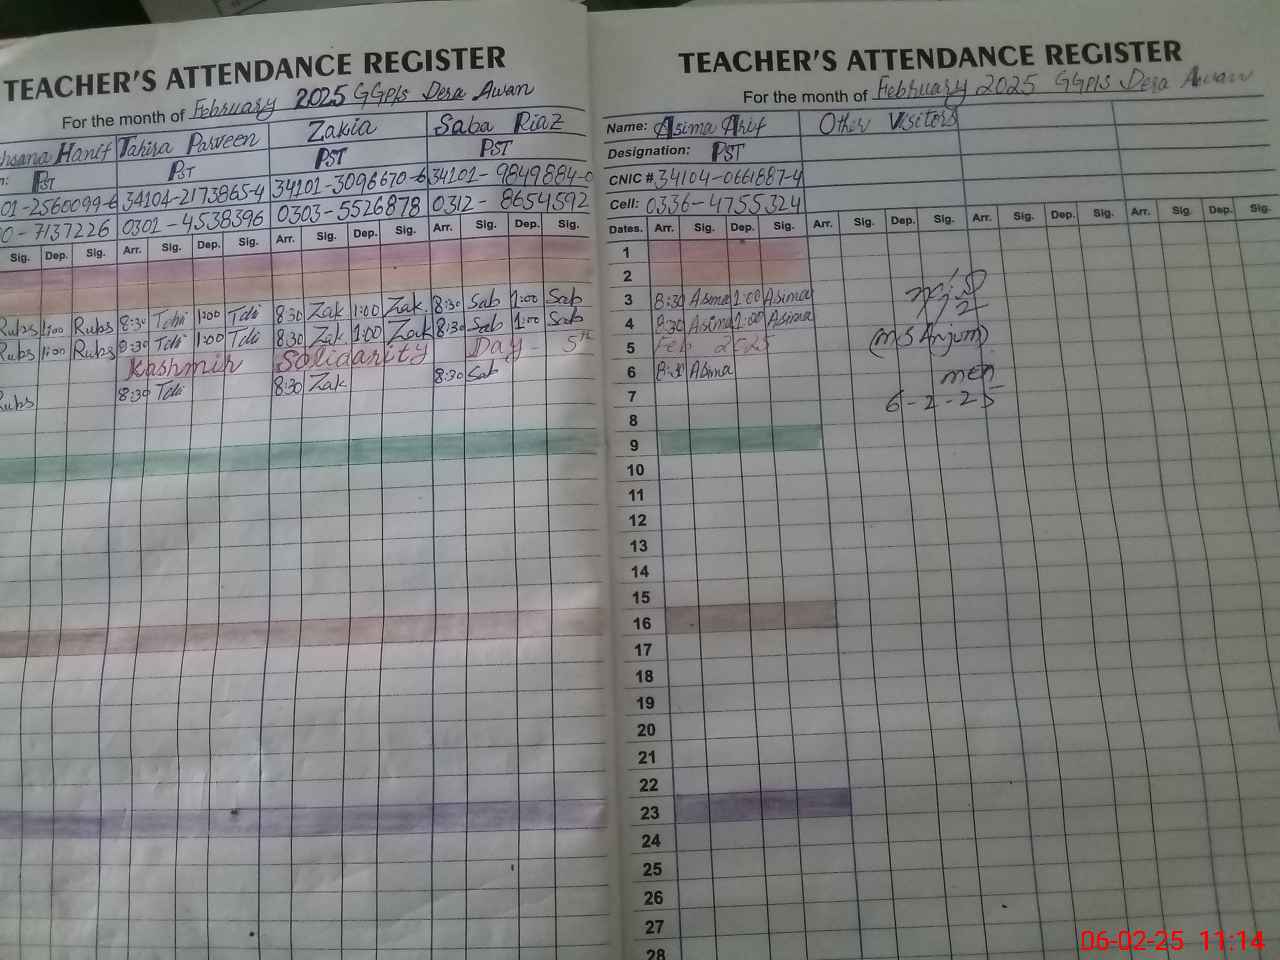 TEACHER'S ATTENDANCE REGISTER
For the month of February 2025 GGP/s Dera Awan
hsana Hanif Tahira Parveen Zakia Saba Riaz
n: PST PST PST PST
01-2560099-6 34104-2173865-4 34101-3096670-6 34101-9849884-0
0-7137226 0301-4538396 0303-5526878 0312-8654592
Sig. Dep. Sig. Arr. Sig. Dep. Sig. Arr. Sig. Dep. Sig. Arr. Sig. Dep. Sig.
Rubs 1:00 Rubs 8:30 1:00 8:30 Zak 1:00 Zak 8:30 Sab 1:00 Sab
Rubs 1:00 Rubs 8:30 1:00 8:30 Zak 1:00 Zak 8:30 Sab 1:00 Sab
Kashmir Solidarity Day - 5th
Rubs 8:30 8:30 Zak 8:30 Sab
TEACHER'S ATTENDANCE REGISTER
For the month of February 2025 GGP/s Dera Awan
Name: Asima Arif Other Visitors
Designation: PST
CNIC # 34104-0661887-4
Cell: 0336-4755324
Dates. Arr. Sig. Dep. Sig. Arr. Sig. Dep. Sig. Arr. Sig. Dep. Sig. Arr. Sig. Dep. Sig.
1
2
3 8:30 Asima 1:00 Asima
4 8:30 Asima 1:00 Asima
5 Feb 2025 (MS Anjum)
6 8:30 Asima
7 6-2-25
8
9
10
11
12
13
14
15
16
17
18
19
20
21
22
23
24
25
26
27
28
06-02-25 11:14